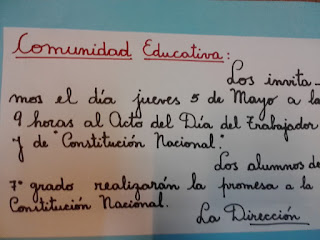 Comunidad Educativa:
Los invita-
mos el día jueves 5 de Mayo a la
9 horas al Acto del Día del Trabajador
y de "Constitución Nacional".
Los alumnos de
7° grado realizarán la promesa a la
Constitución Nacional.
La Dirección